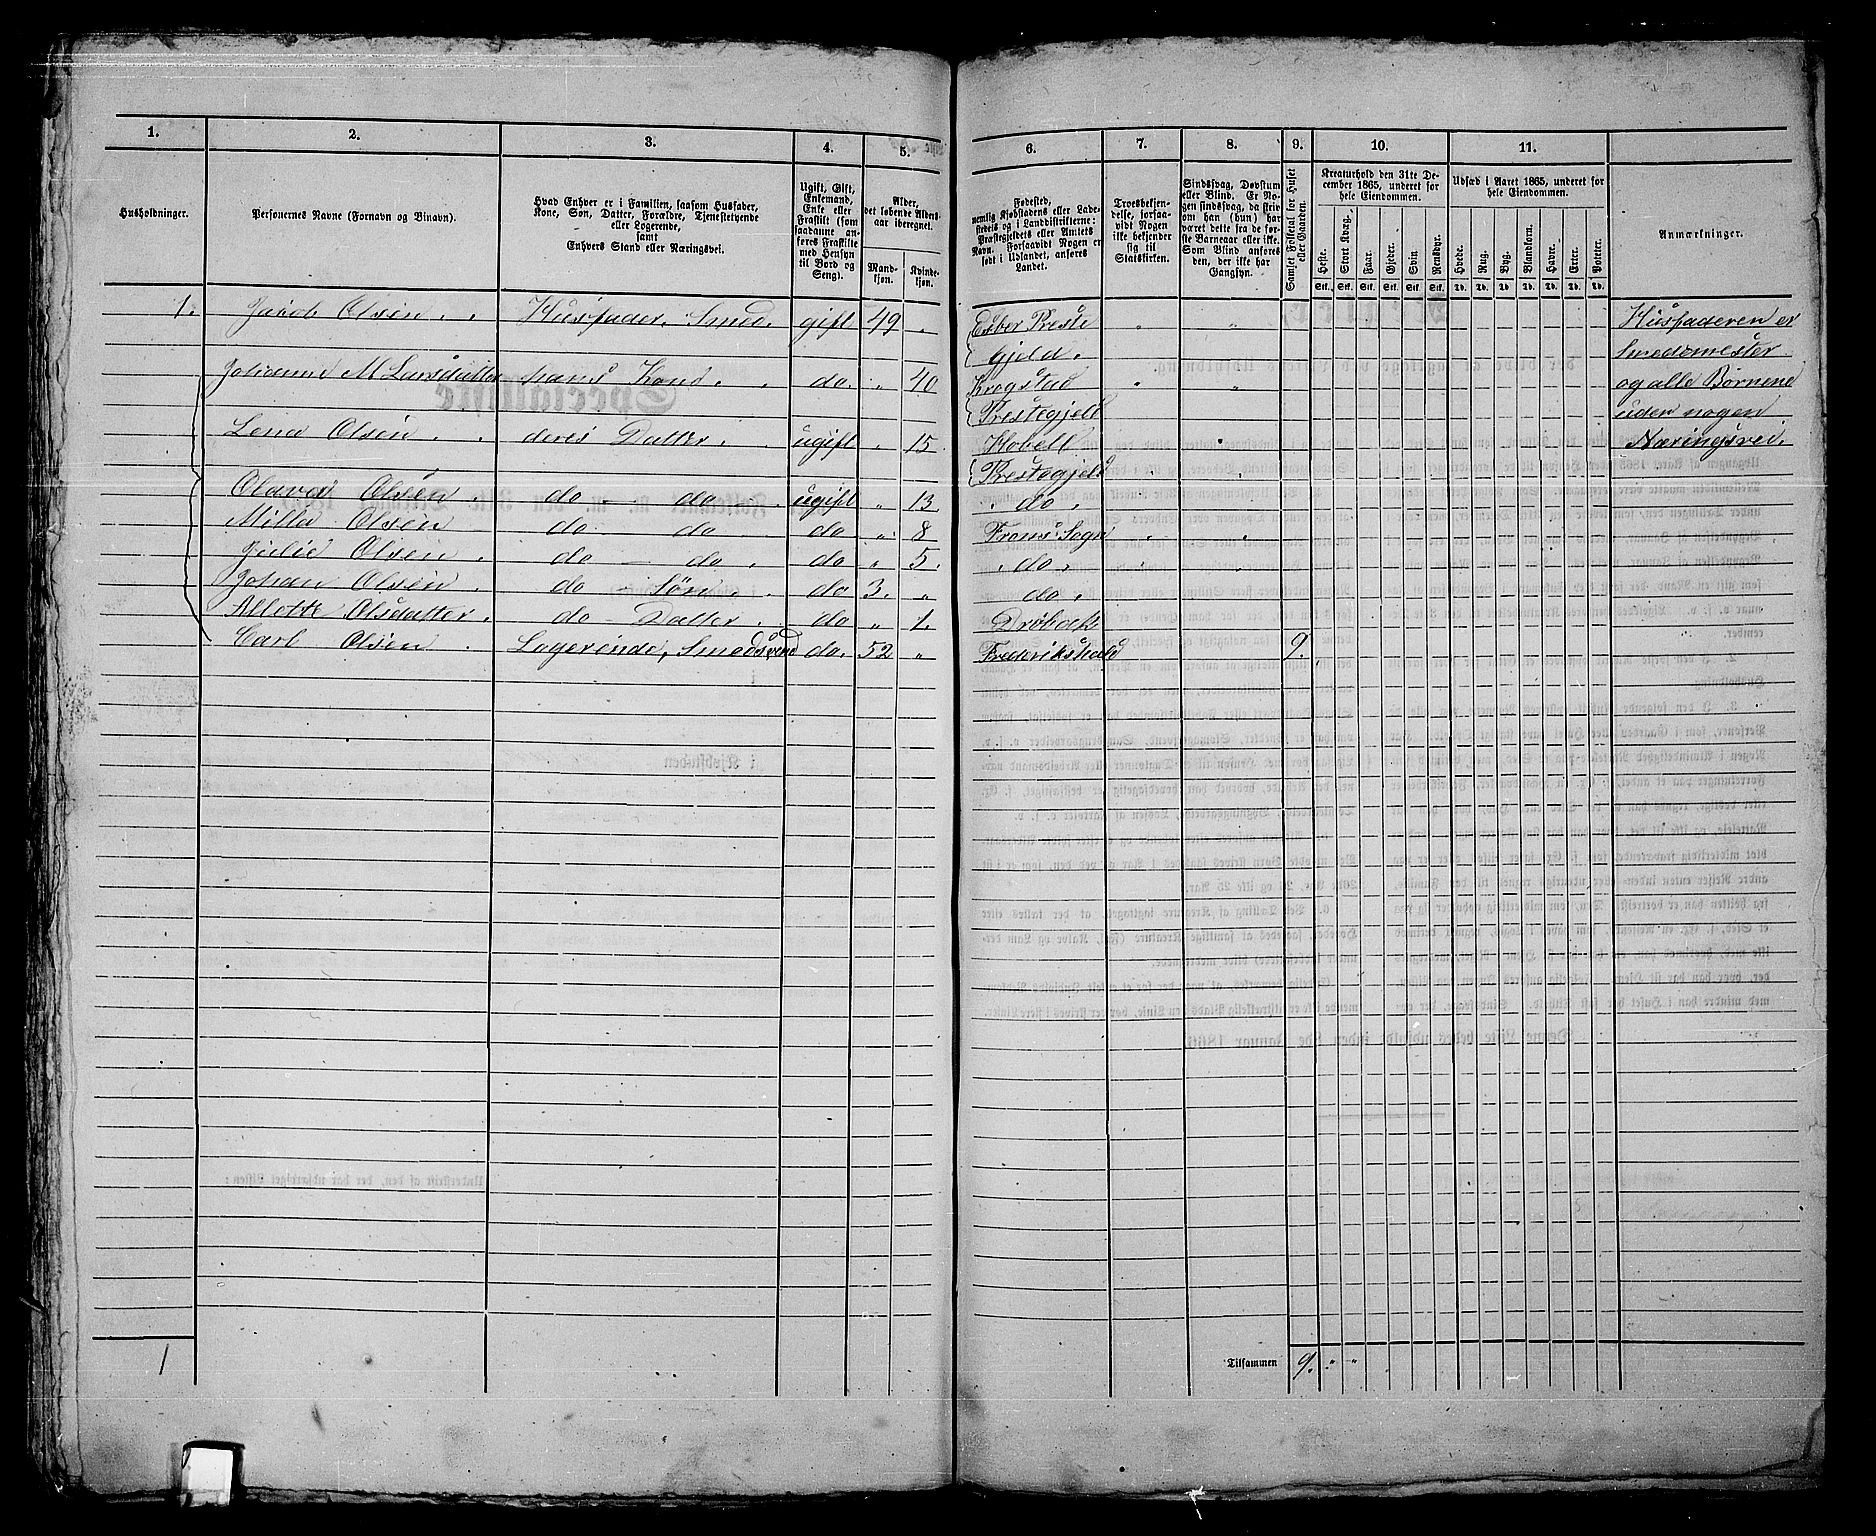 1. 2. 3. 4. 5. 6. 7. 8. 9. 10. 11.
Husholdninger.
Personernes Navne (Fornavn og Binavn).
Hvad Enhver er i Familien, saasom Husfader,
Kone, Søn, Datter, Forældre, Tjenestetyende
eller Logerende,
samt
Enhvers Stand eller Næringsvei.
Ugift, Gift,
Enkemand,
Enke eller
Fraskilt (som
saadanne an-
føres Fraskilte
med Hensyn
til Bord og
Seng).
Alder,
det løbende Alders-
aar iberegnet.
Mand-
kjøn.
Kvinde-
kjøn.
Fødested,
nemlig Kjøbstadens eller Lade-
stedets og i Landdistrikterne:
Præstegjeldets eller Amtets
Navn. Forsaavidt Nogen er
født i Udlandet, anføres
Landet.
Troesbekjen-
delse, forsaa-
vidt Nogen
ikke bekjender
sig til
Statskirken.
Sindssvag, Døvstum
eller Blind. Er No-
gen sindssvag, da skriv
om han (hun) har
været dette fra de før-
ste Barneaar eller ikke.
Som Blind anføres
den, der ikke har
Gangsyn.
Samlet Folketal for Huset
eller Gaarden.
Kreaturhold den 31te De-
cember 1865, underet for
hele Eiendommen.
Heste. Stort Kvæg. Faar. Gjeder. Svin Rensdyr.
Stk. Stk. Stk. Stk. Stk. Stk.
Udsæd i Aaret 1865, underet for
hele Eiendommen.
Hvede. Rug. Byg. Blankorn. Havre. Erter. Poteter.
Td. Td. Td. Td. Td. Td. Td.
Anmærkninger.
1. Jacob Olsen Husfader, Smed. gift 49 " Edsber Preste " " Husfaderen er
gjeld. Smedemester
Johanne M Larsdatter hans Kone. do. " 40 Krogstad " " og alle Børnene
Prestegjeld uden nogen
Lena Olsen deres Datter. ugift " 15 Hobell Næringsvei.
Prestegjeld
Olava Olsen do do ugift " 13 do
Milla Olsen do do do " 8 Frons Sogn
Julie Olsen do do do " 5 do
Johan Olsen do Søn do 3. " do
Allette Olsdatter do Datter do " 1. Drøbak
Carl Olsen Logerende, Smedsvend do. 52 " Frederikshald 9.
1
Tilsammen 9. " "